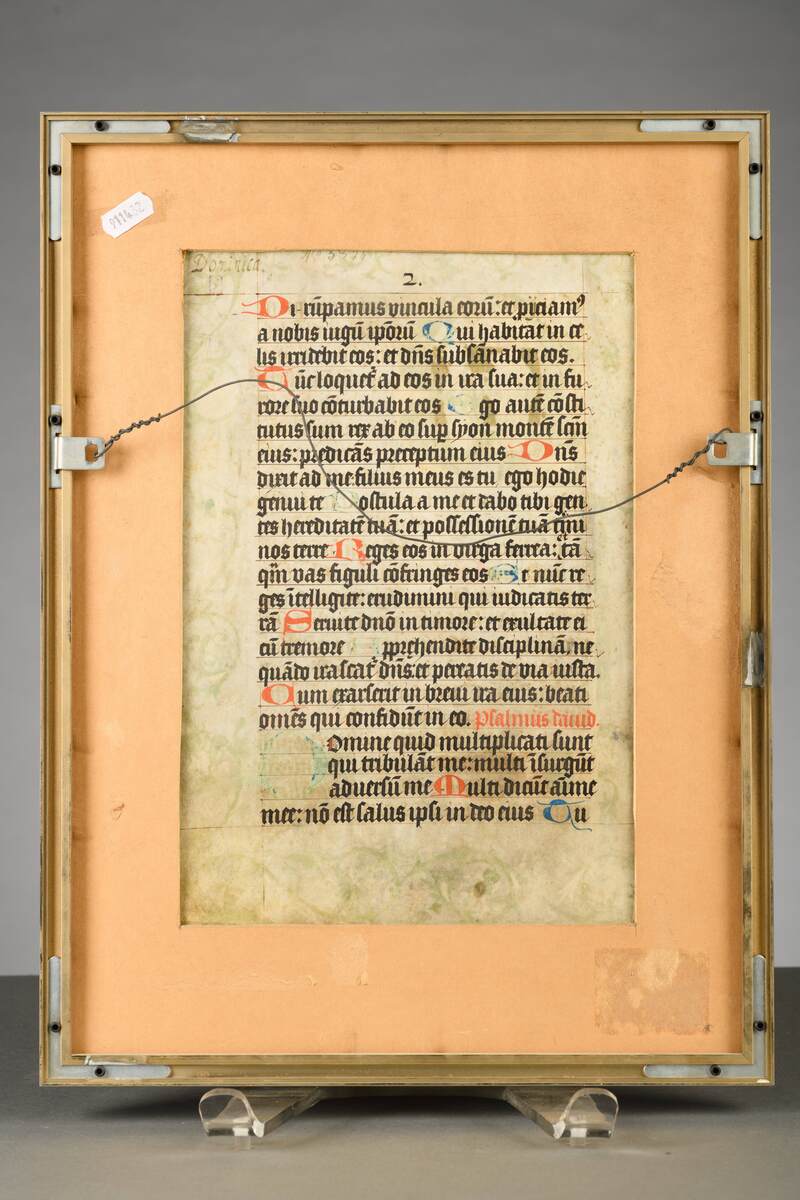 Dominica.
911432
2.
Di rūpamus vincula eorū: et piciamꝰ
a nobis iugū ipōrū Qui habitat in ce
lis irridebit eos: et dn̄s subsānabit eos.
Tūc loquet᷑ ad eos in ira sua: et in fu
rore suo cōturbabit eos go autē cōsti
tutus sum rex ab eo sup syon montē scm̄
eius: predicās preceptum eius Dn̄s
dixit ad me filius meus es tu ego hodie
genui te ostula a me et dabo tibi gen
tes hereditatē tuā: et possessionē tuā
nos terre Reges eos in virga ferrea: tā
qm̄ vas figuli cōfringes eos Et nūc re
ges ītelligite: erudimini qui iudicatis ter
rā Seruite dn̄o in timore: et exultate ei
cū tremore pprehendite disciplinā, ne
quādo irascat᷑ dn̄s: et pereatis de via iusta.
Cum exarserit in breui ira eius: beati
omēs qui confidūt in eo. Psalmus dauid.
omine quid multiplicati sunt
qui tribulāt me: multi īsurgūt
aduersū me Multi dicūt aīme
mee: nō est salus ipsi in deo eius Tu